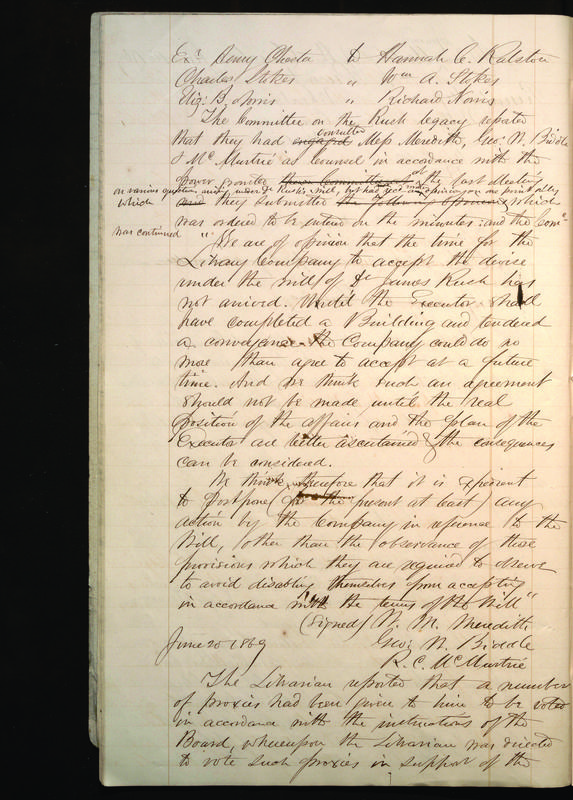 Exr. Henry Chester to Hannah C. Ralston
Charles Stokes " Wm A. Stokes
Eliz: B. Norris " Richard Norris
The Committee on the Rush legacy reported
consulted
that they had engaged Mess Meredith, Geo: N. Biddle
& McMurtrie as Counsel in accordance with the
power the last Meeting
on various questions under Dr Rush's Will, but had recd only
which and they submitted the following opinion which
was ordered to be entered on the minutes: and the Come
was continued
"We are of opinion that the time for the
Library Company to accept the devise
under the will of Dr James Rush has
not arrived. Until the Executor shall
have completed a Building and tendered
a conveyance the Company could do no
more than agree to accept at a future
time. And we think such an agreement
should not be made until the real
position of the affairs and the plan of the
Executor are better ascertained & the consequences
can be considered.
We think therefore that it is expedient
to postpone (for the present at least) any
action by the Company in reference to the
Will, other than the observance of those
provisions which they are required to observe
to avoid disabling themselves from accepting
in accordance with the terms of the Will"
(Signed) W. M. Meredith
June 20 1869 Geo: N. Biddle
R. C. McMurtrie
The Librarian reported that a number
of proxies had been given to him to be voted
in accordance with the instructions of the
Board, whereupon the Librarian was directed
to vote such proxies in support of the